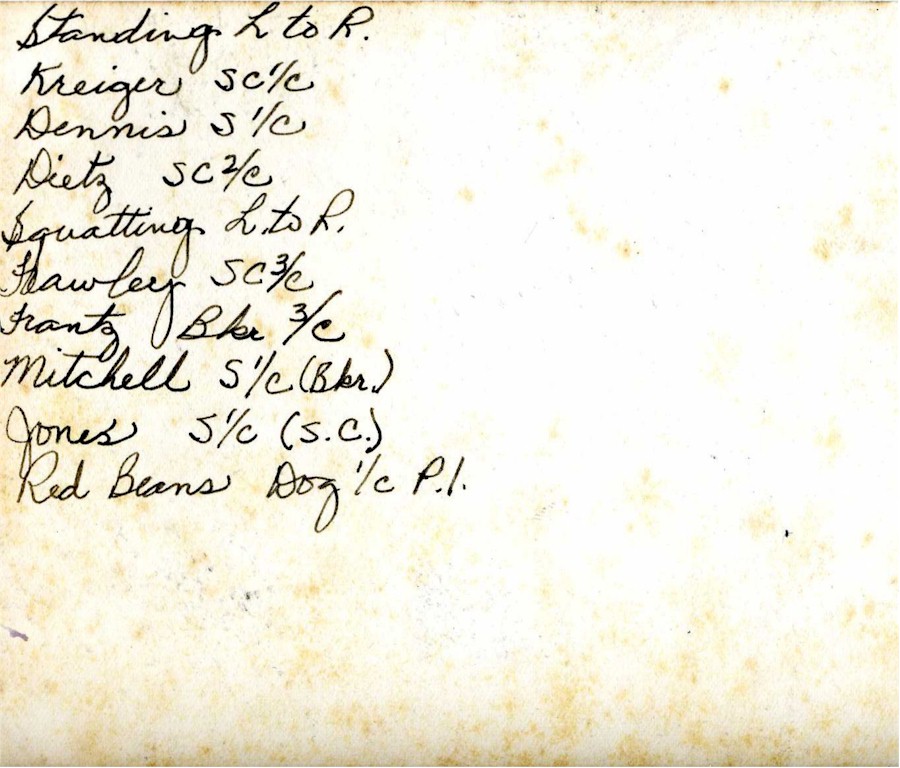 Standing L to R.
Kreiger SC 1/c
Dennis S 1/c
Dietz SC 2/c
Squatting L. to R.
Hawley SC 3/c
Frantz Bkr 3/c
Mitchell S 1/c (Bkr.)
Jones S 1/c (S.C.)
Red Beans Dog 1/c P.I.